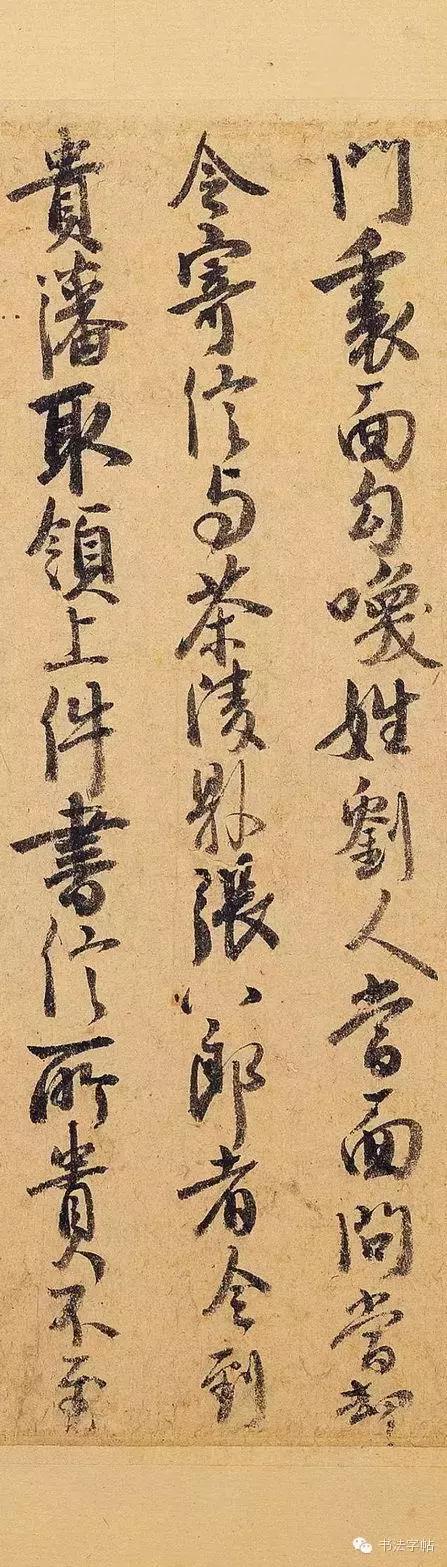 門裏面勾喚姓劉人當面問當却
令寄信与茶陵縣張八郎者令到
貴藩取領上件書信所貴不至
书法字帖